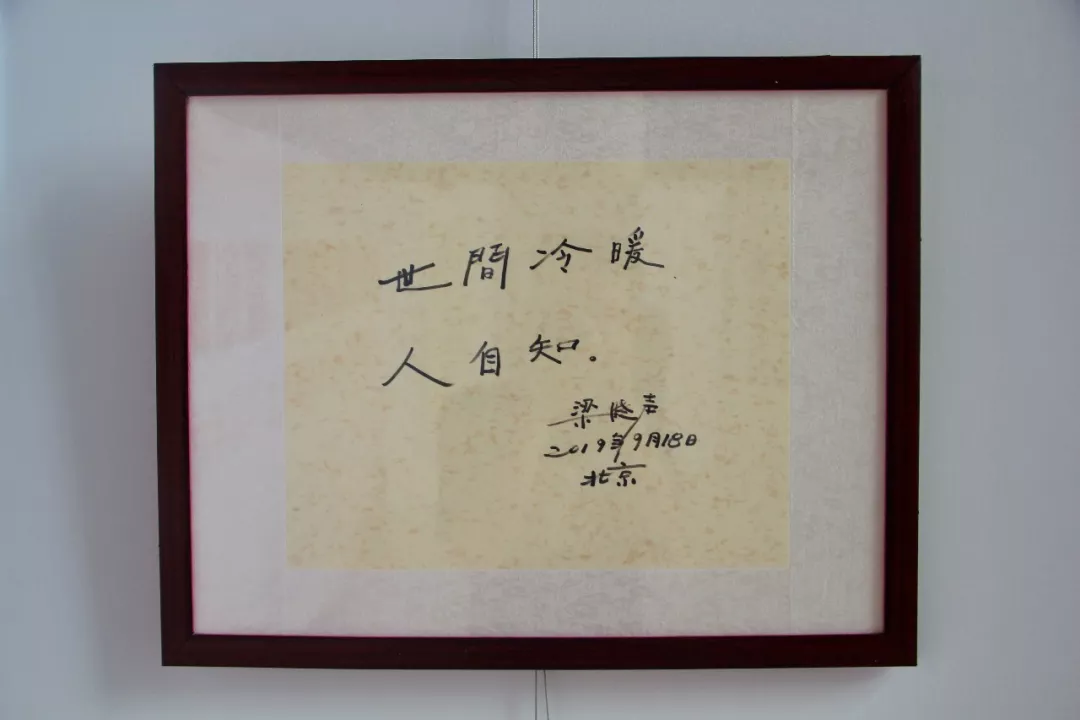 世間冷暖
人自知。
梁晓声
2019年9月18日
北京